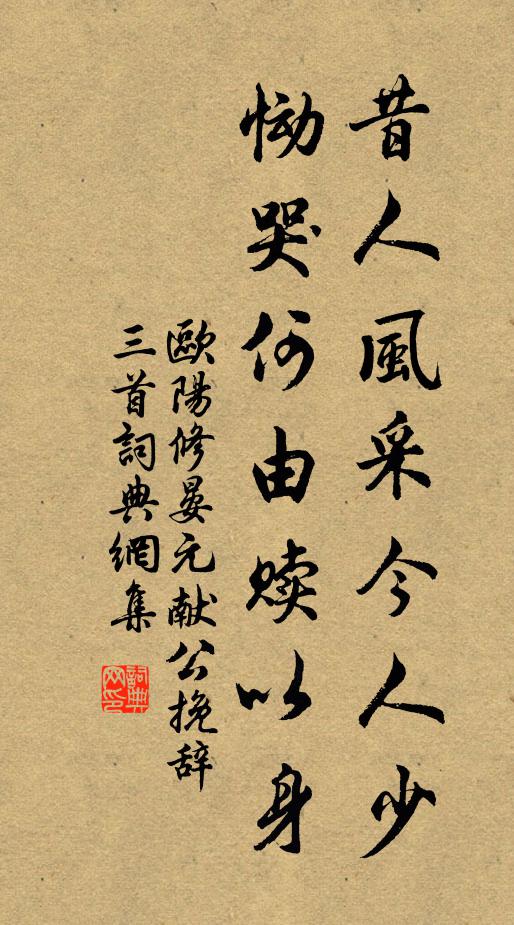 昔人風采今人少
慟哭何由赎以身
歐陽修晏元献公挽辞
三首詞典網集
詞典网印